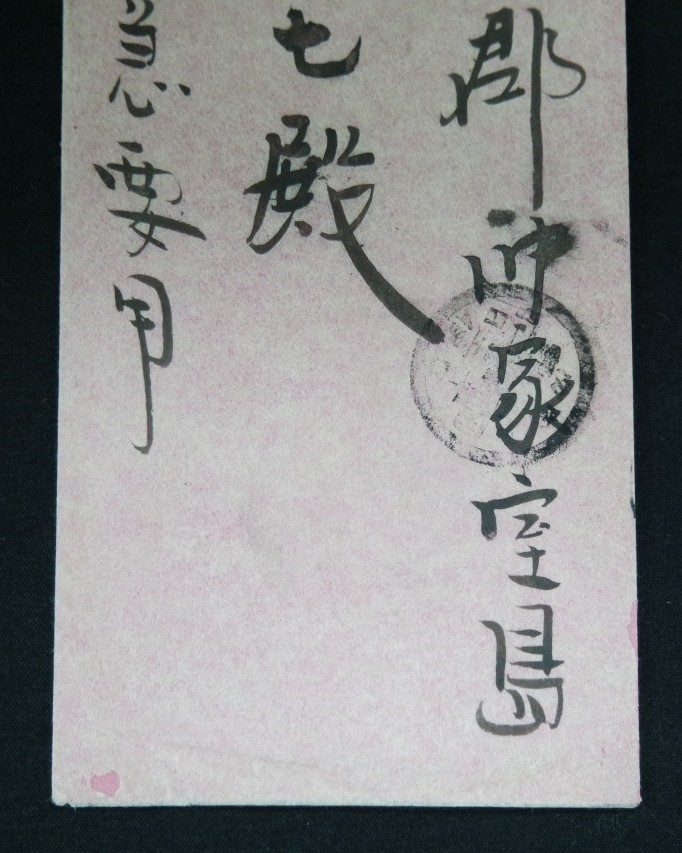 郡沖家室島
七殿
急要用